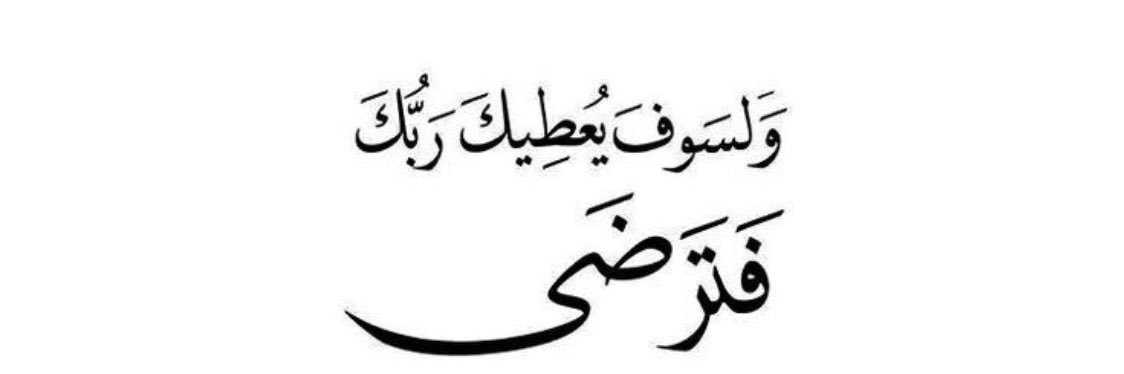 وَلَسَوفَ يُعَطِيكَ رَبُّكَ
فَتَرَضَى